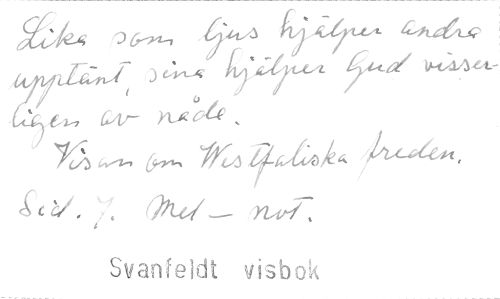 Lika som ljus hjälper andra
upptänt, sina hjälper Gud visser-
ligen av nåde.
Visan om Westfaliska freden.
Sid. 7. Mel – not.
Svanfeldt visbok